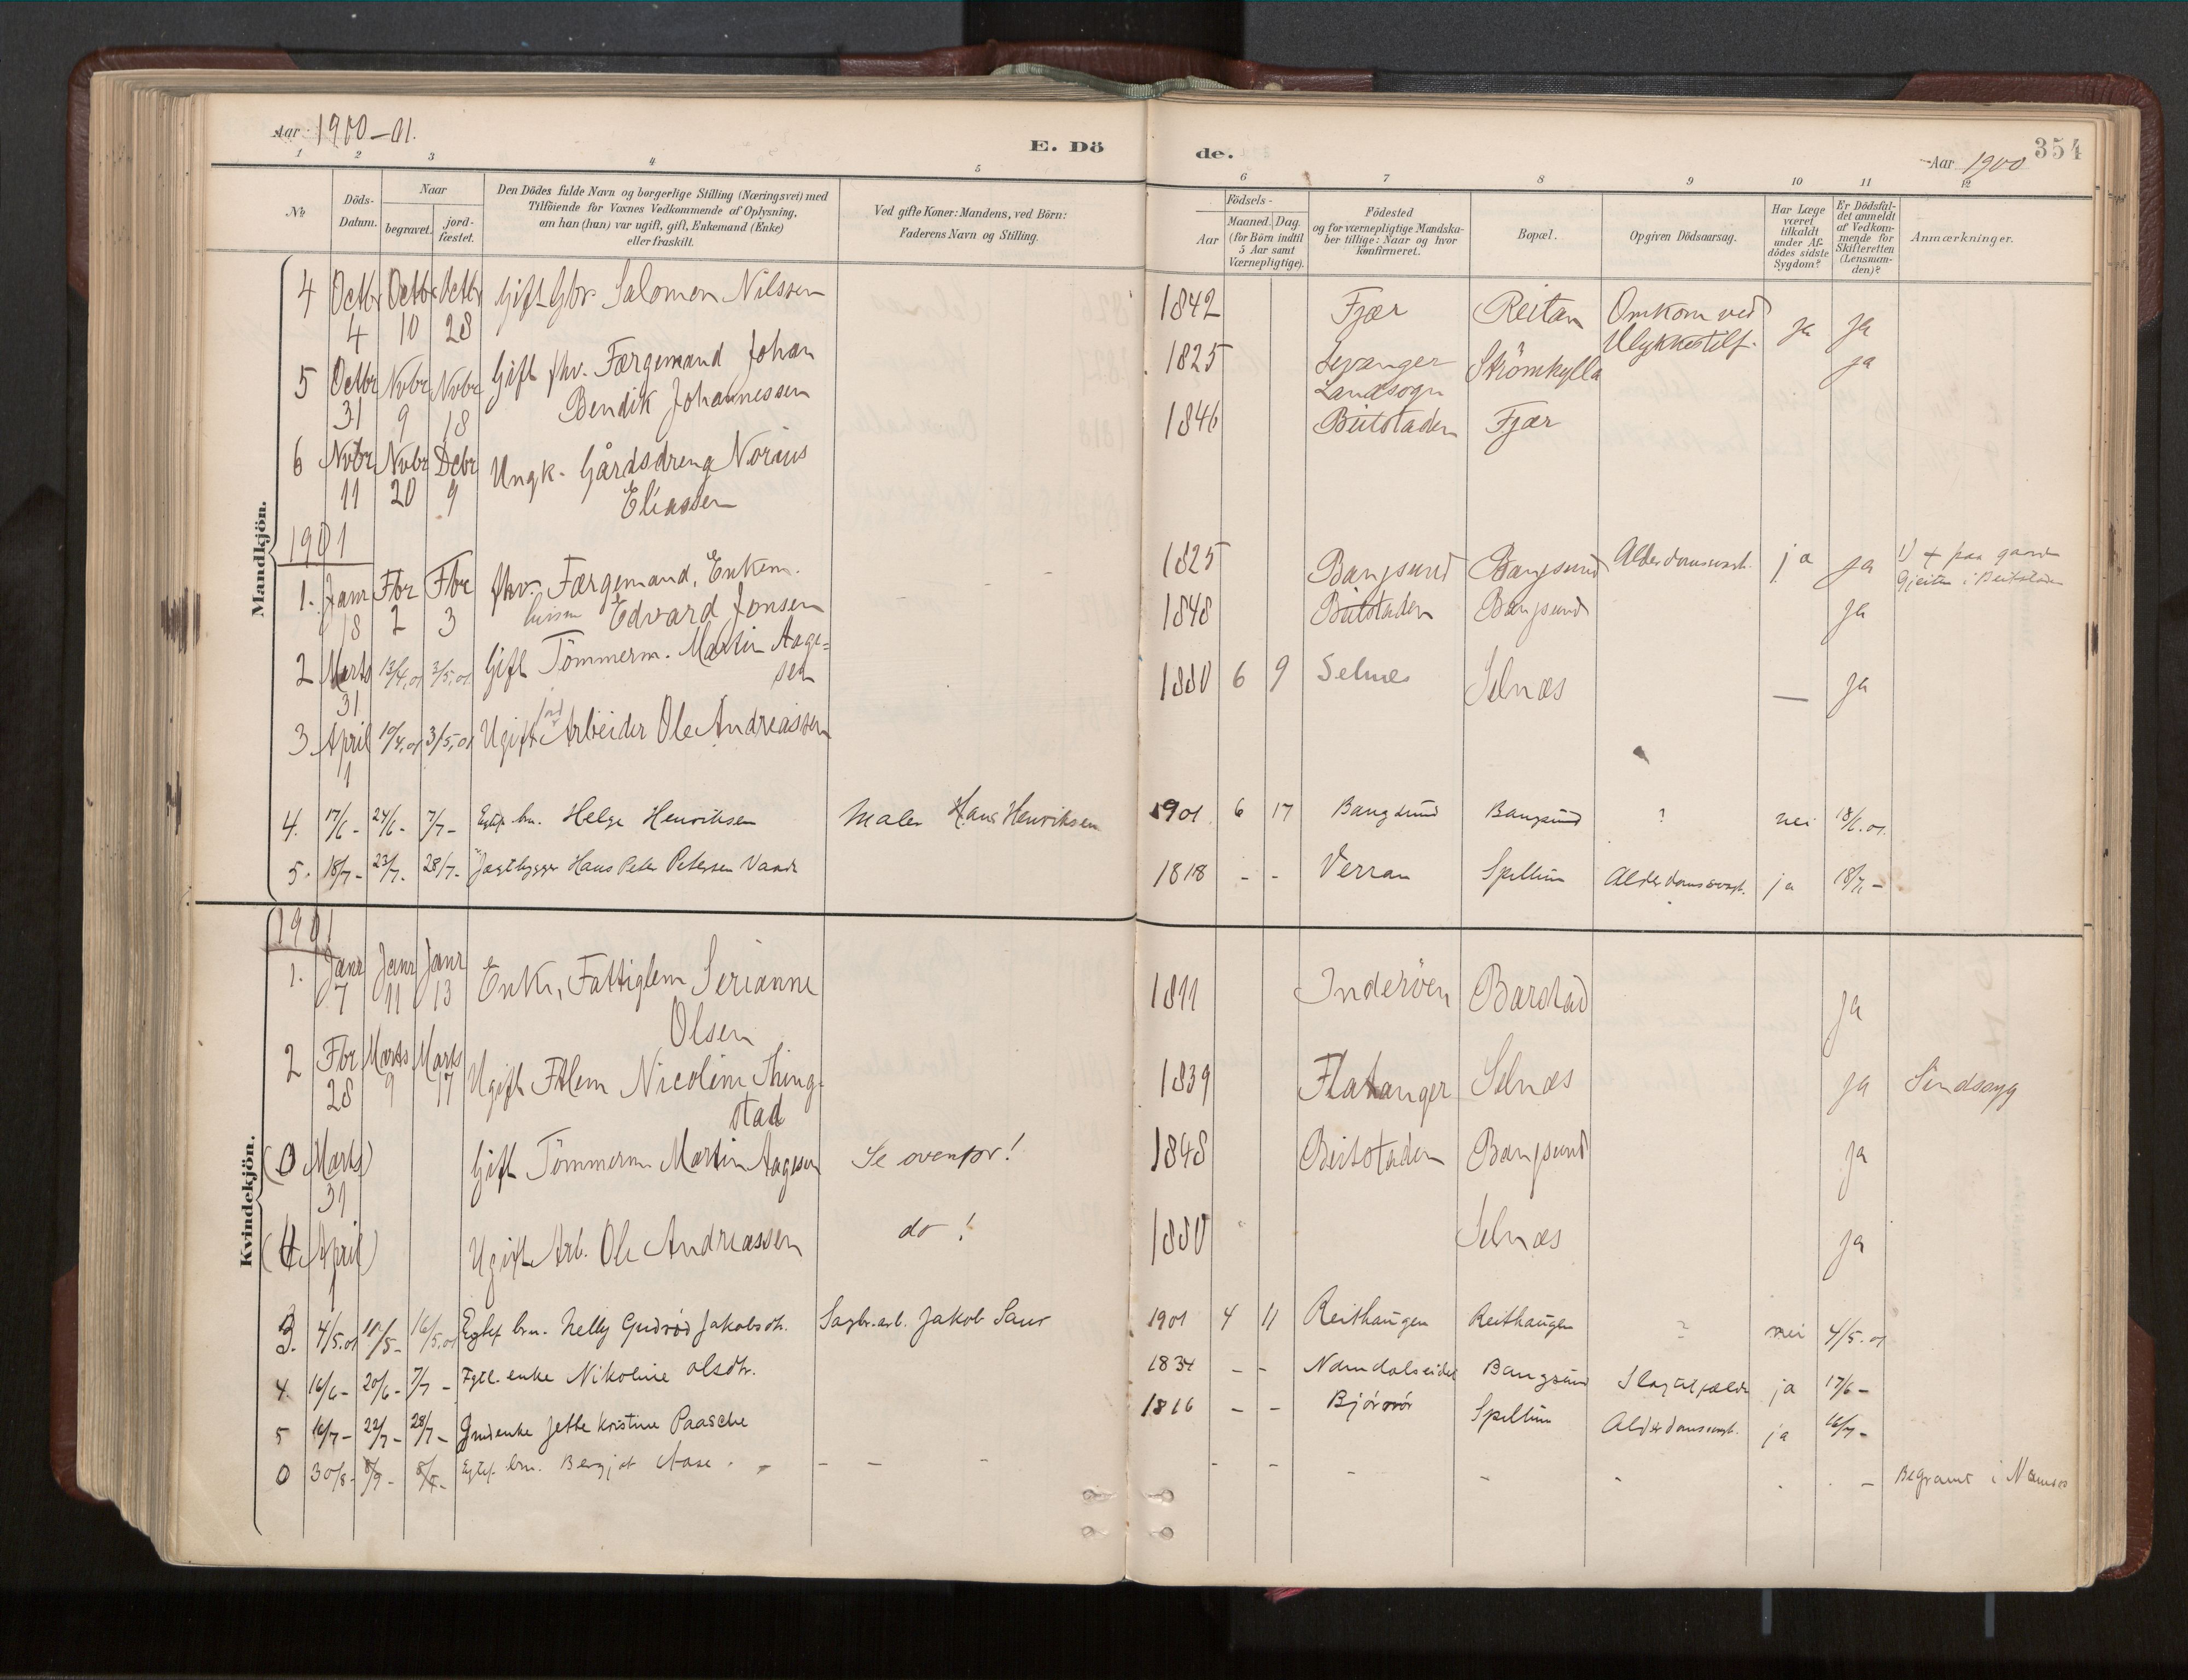 Aar 1900-01.
E. Dö
de.
Aar 1900
354
1 2 3 4 5 6 7 8 9 10 11 12
№
Döds-Datum.
Naar
begravet.
jord-fæstet.
Den Dödes fulde Navn og borgerlige Stilling (Næringsvei) med
Tilföiende for Voxnes Vedkommende af Oplysning,
om han (hun) var ugift, gift, Enkemand (Enke)
eller fraskilt.
Ved gifte Koner: Mandens, ved Börn:
Faderens Navn og Stilling.
Födsels-
Aar
Maaned. Dag.
(for Börn indtil
5 Aar samt
Værnepligtige).
Födested
og for værnepligtige Mandska-
ber tillige: Naar og hvor
konfirmeret.
Bopæl.
Opgiven Dödsaarsag.
Har Læge
været
tilkaldt
under Af-
dödes sidste
Sygdom?
Er Dödsfal-
det anmeldt
af Vedkom-
mende for
Skifteretten
(Lensman-
den)?
Anmærkninger.
Mandkjön.
4 Octbr 4 Octbr 10 Octbr 28 Gift Gbr. Salomon Nilssen 1842 Fjær Reitan Omkom ved Ulykkestilf. ja ja
5 Octbr 31 Nvbr 9 Nvbr 18 Gift fhv. Færgemand Johan
Bendik Johannessen 1825 Levanger Landsogn Strömhylla ja
6 Nvbr 11 Nvbr 20 Dcbr 9 Ungk. Gårdsdreng Norius
Eliassen 1846 Beitstaden Fjær
1901
1. Janr 18 Fbr 2 Fbr 3 fhv. Færgemand, Enkem.
Edvard Jonsen - - 1825 Bangsund Bangsund Alderdomssvagh. ja ja 1) + paa gaard
Gjeiten i Beitstaden
2 Marts 31 13/4.01 3/5.01 Gift Tömmerm. Martin Aage=
sen 1848 Beitstaden Bangsund ja
3 April 1 10/4.01 3/5.01 Ugift Arbeider Ole Andreassen 1880 6 9 Selnes Selnæs — ja
4. 17/6- 24/6- 7/7- Egtef. brn. Helge Henriksen Maler Hans Henriksen 1901 6 17 Bangsund Bangsund ? nei 18/6.01.
5. 18/7- 23/7- 28/7- Jagtbygger Hans Peter Petersen Vaade 1818 - - Verran Spillum Alderdomssvagh. ja 18/7-
Kvindekjön.
1901
1. Janr 7 Janr 11 Janr 13 Enke, Fattiglem Serianne
Olsen 1811 Inderöen Barstad ja
2 Fbr 28 Marts 9 Marts 17 Ugift Ftlem Nicoline Thing-
stad 1839 Flatanger Selnæs ja Sindssyg
(0 Marts) 31 Gift Tömmerm Martin Aagesen Se ovenfor! 1848 Beitstaden Bangsund ja
(4 April) 1 Ugift Arb. Ole Andreassen do! 1880 Selnæs ja
3. 4/5.01 11/5- 16/5.01 Egtef. brn. Nelly Gudrød Jakobsdtr. Sagbr.arb. Jakob Saur 1901 4 11 Reithaugen Reithaugen ? nei 4/5.01
4. 16/6- 20/6- 7/7- Fgtl. enke Nikoline Olsdtr. 1834 - - Namdalseidet Bangsund Slagtilfælde ja 17/6-
5 16/7- 22/7- 28/7- Grdenke Jette Kristine Paasche 1816 - - Bjørør Spillum Alderdomssvagh. ja 16/7-
0 30/8- 8/9- 8/9- Egtef. brn. Bergjot Aase - - - - - - - - - - Begravet i Namsos